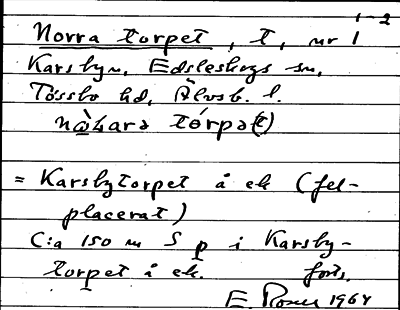 1-2
Norra torpet, t, nr 1
Karsbyn, Edsleskogs sn,
Tössbo hd, Älvsb. l.
nòʐarə tórpə(t)
= Karsbytorpet å ek (fel-
placerat)
C:a 150 m S p i Karsby-
torpet å ek. forts.
E. Rosell 1964